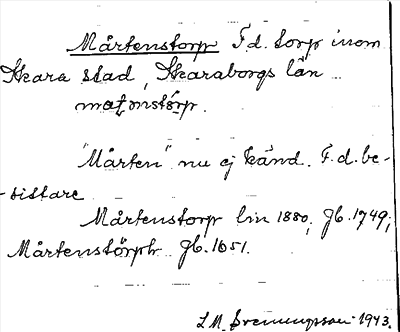 Mårtenstorp F.d. torp inom
Skara stad, Skaraborgs län
matonstorp.
"Mårten" nu ej känd. F.d. be-
-sittare
Mårtenstorp lin 1880; Jb. 1749;
Mårtenstörph Jb. 1651.
L.M. Svenungsson 1943.